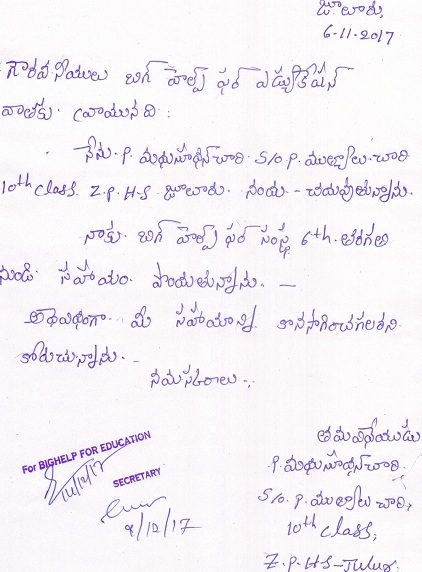 జూలూరు,
6-11-2017
గౌరవనీయులు బిగ్ హెల్ప్ ఫర్ ఎడ్యుకేషన్
వాళకు వ్రాయునది :
నేను. P. మధుసూధన్ చారి. S/o P. ముత్యాలు చారి
10th class. Z.P.H.S జూలూరు. నందు - చదువుతున్నాను.
నాకు. బిగ్ హెల్ప్ ఫర్ సంస్థ 6th. తరగతి
నుండి. సహాయం పొందుతున్నాను. -
అదేవిధంగా. మీ సహాయాన్ని కొనసాగించగలరని
కోరుచున్నాను. -
నమస్కారాలు -.
For BIGHELP FOR EDUCATION
14/12/17
SECRETARY
9/12/17
తమవిధేయుడు
P. మధుసూధన్ చారి.
S/o. P. ముత్యాలు చారి,
10th class,
Z.P.H.S - Julur.